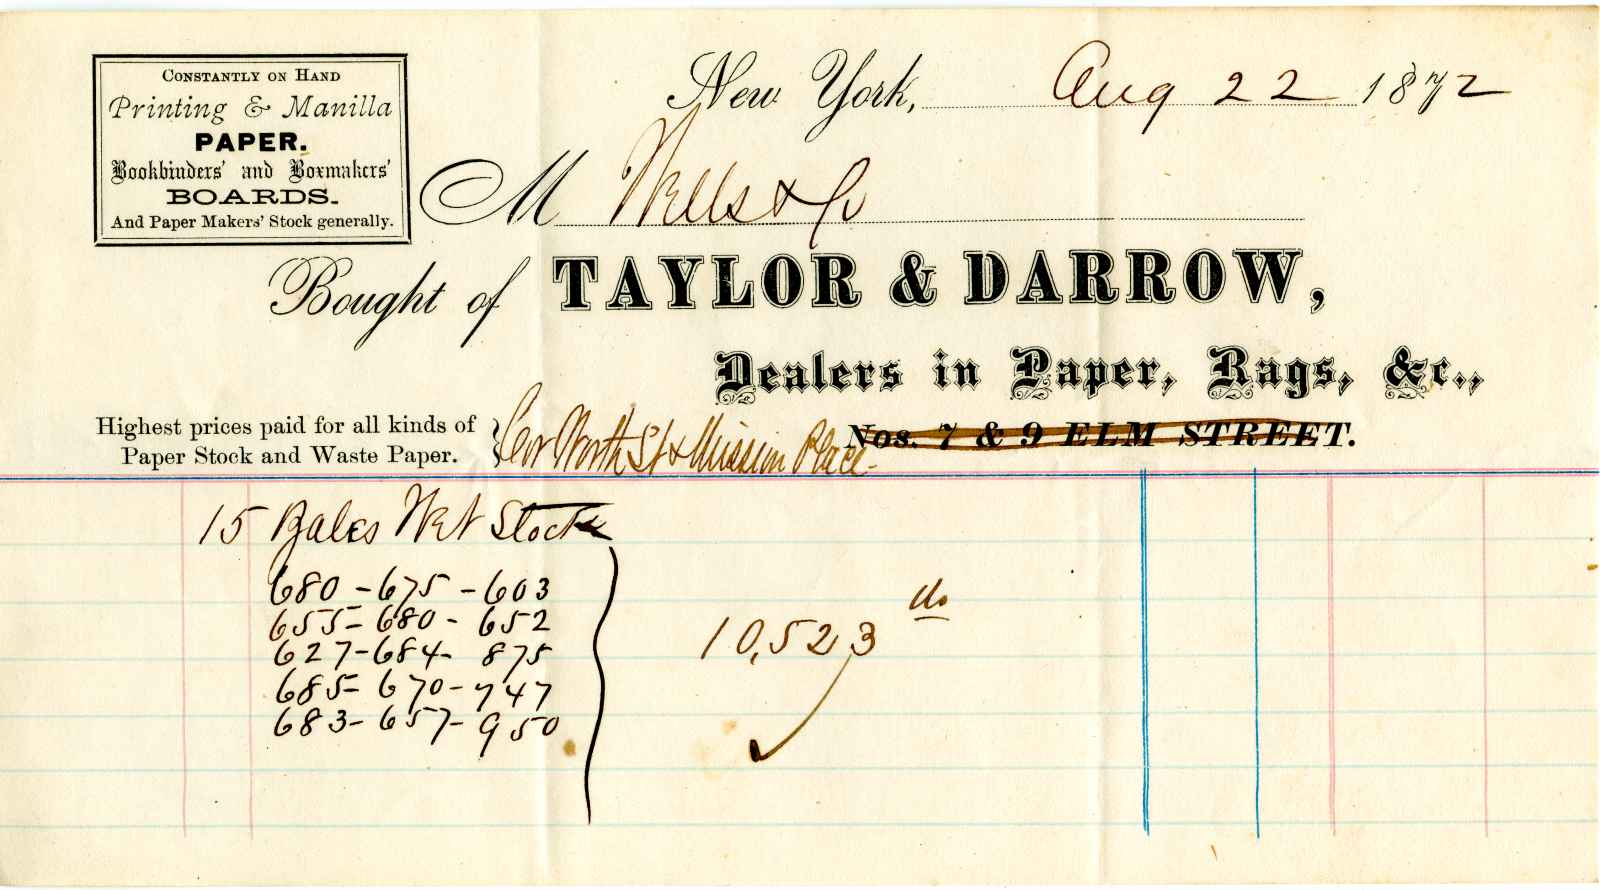 CONSTANTLY ON HAND
Printing & Manilla
PAPER.
Bookbinders' and Boxmakers'
BOARDS.
And Paper Makers' Stock generally.
New York, Aug 22 1872
M Wells & Co
Bought of TAYLOR & DARROW,
Dealers in Paper, Rags, &c.,
Highest prices paid for all kinds of
Paper Stock and Waste Paper.
Cor Worth St & Mission Place
Nos. 7 & 9 ELM STREET.
15 Bales Wet Stock
680 - 675 - 603
655 - 680 - 652
627 - 684 - 875
685 - 670 - 747
683 - 657 - 950
10,523